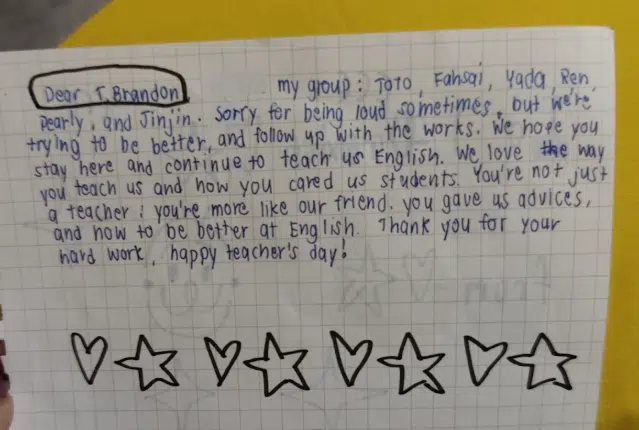 Dear T.Brandon my group : TOTO, Fahsai, Yada, Ren,
Pearly, and Jinjin. Sorry for being loud sometimes, but we're
trying to be better, and follow up with the works. We hope you
stay here and continue to teach us English. We love the way
you teach us and how you cared us students. You're not just
a teacher ; you're more like our friend. you gave us advices,
and how to be better at English. Thank you for your
hard work, happy teacher's day!
From